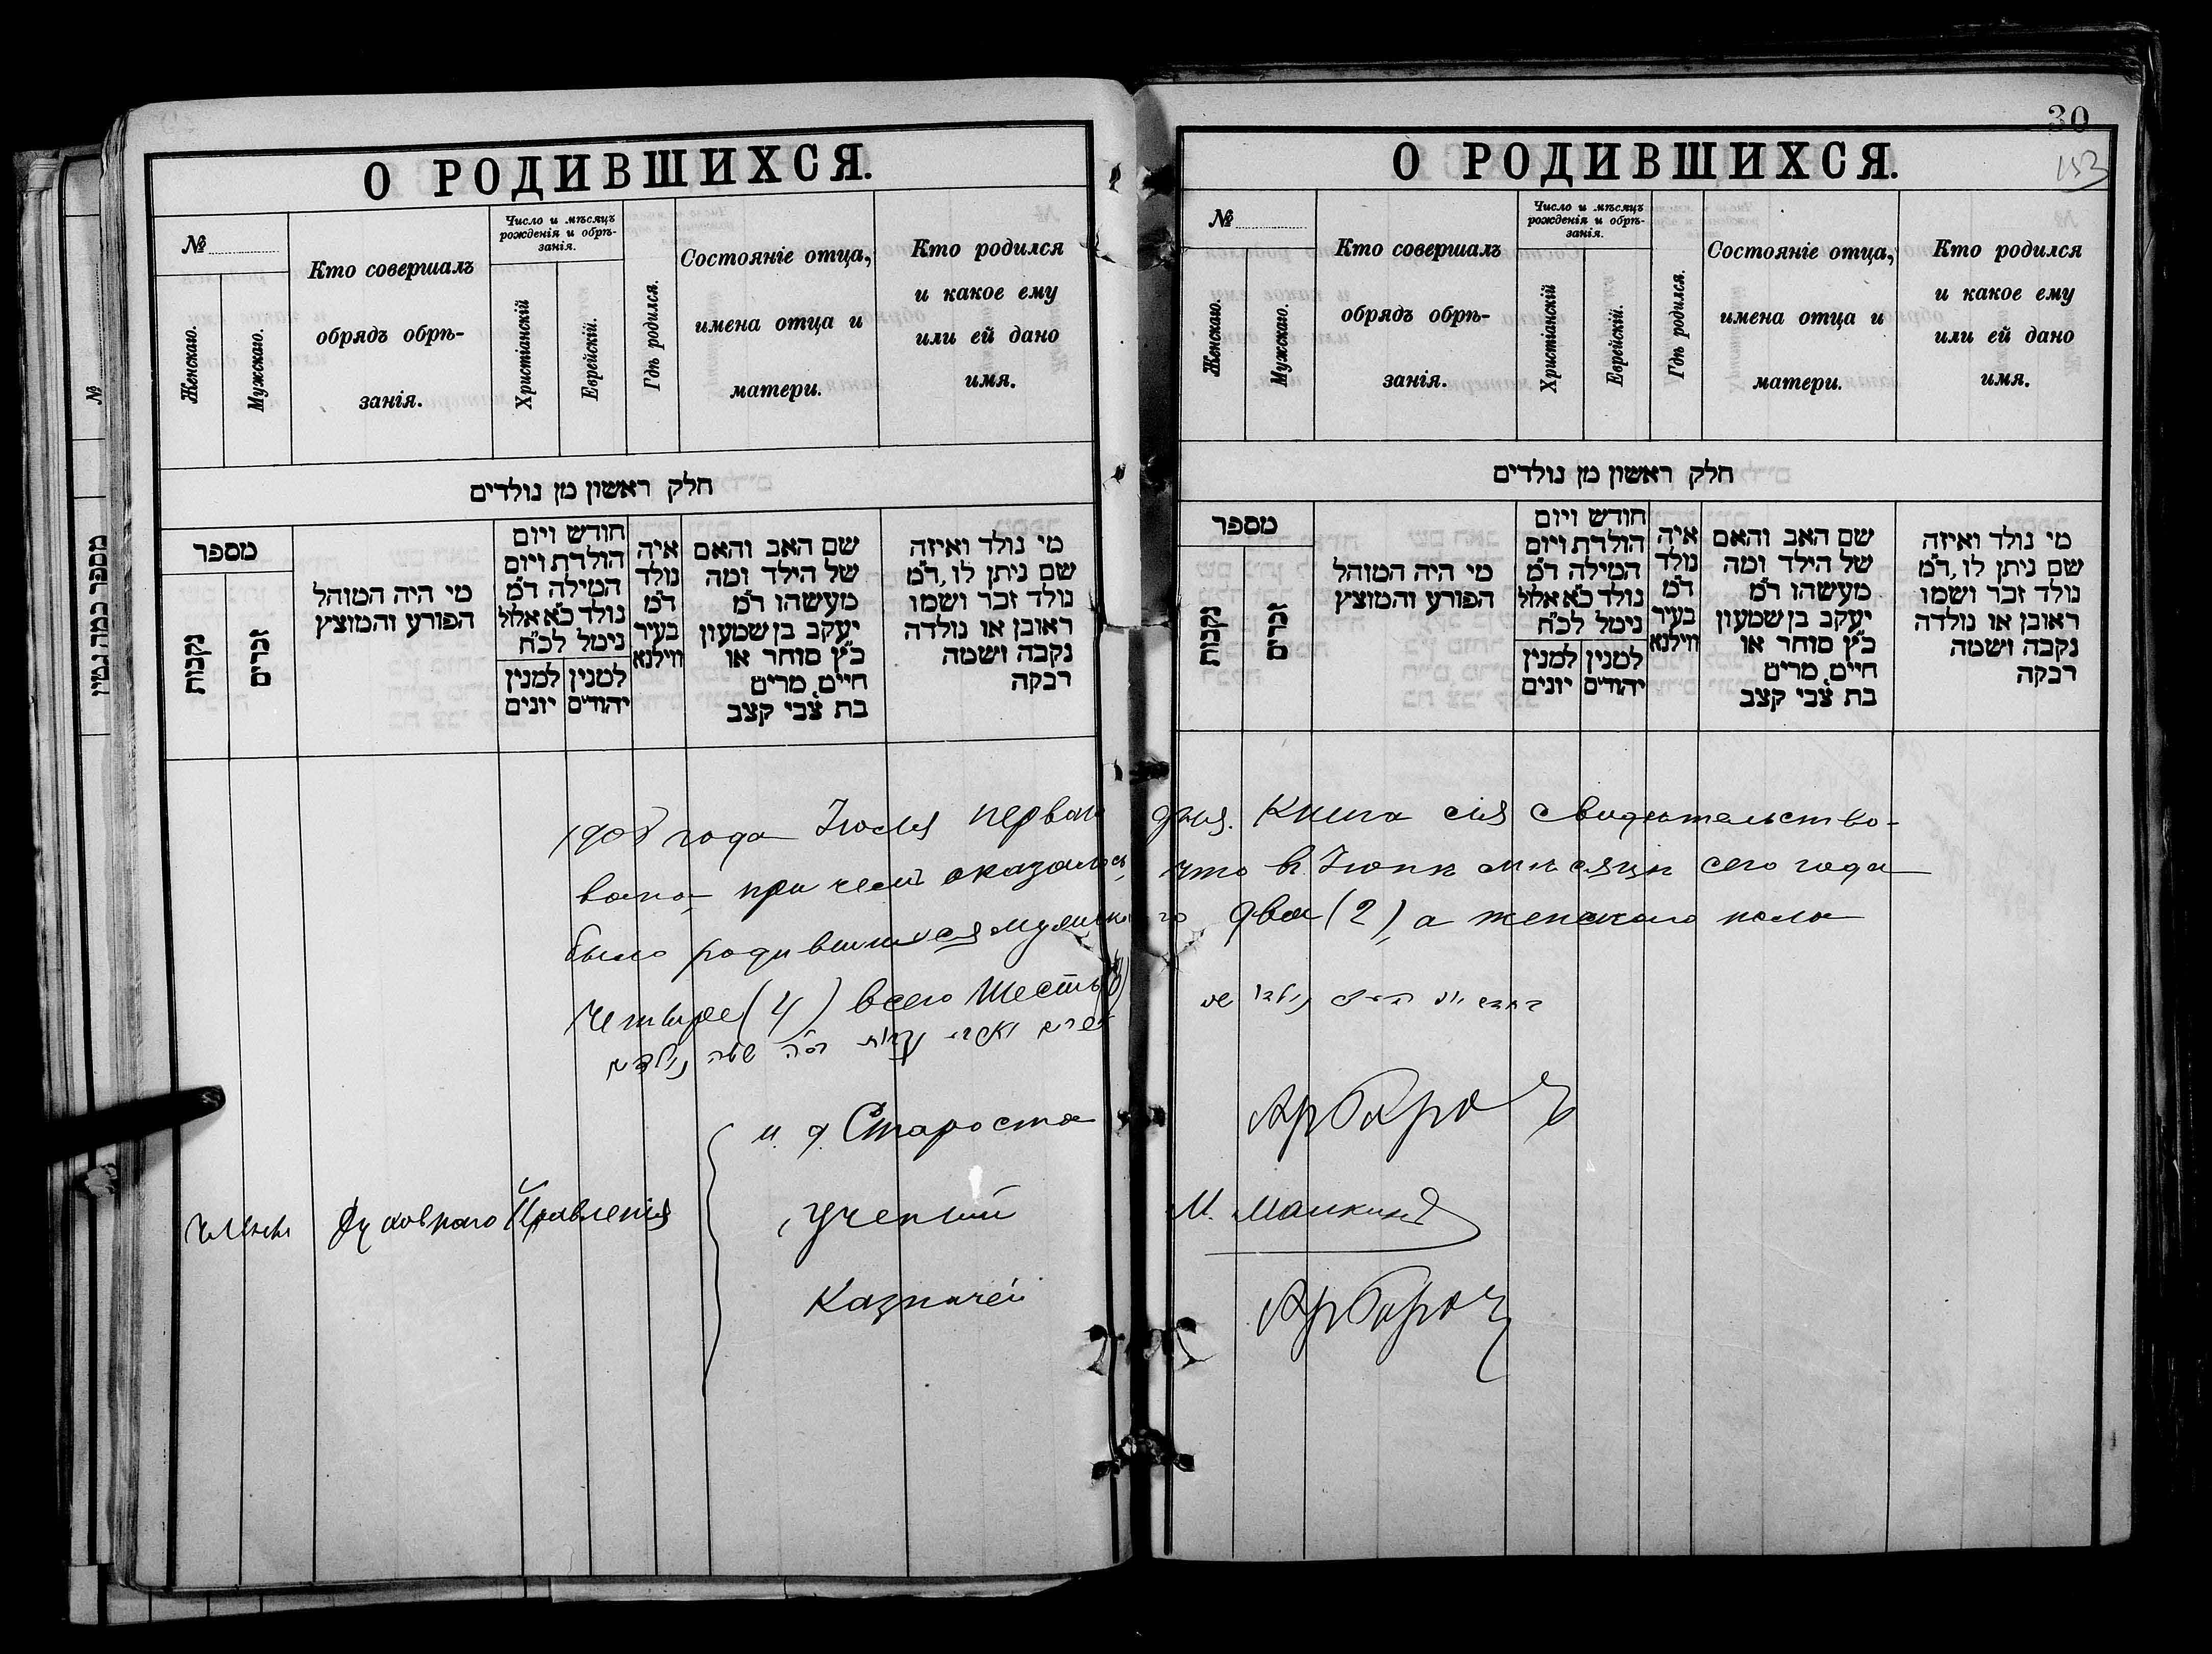 О РОДИВШИХСЯ.
№
Женскаго.
Мужскаго.
Кто совершалъ
обрядъ обрѣ-
занія.
Число и мѣсяцъ
рожденія и обрѣ-
занія.
Христіанскій
Еврейскій.
Гдѣ родился.
Состояніе отца,
имена отца и
матери.
Кто родился
и какое ему
или ей дано
имя.
חלק ראשון מן נולדים
מספר
נקבות
זכרים
מי היה המוהל
הפורע והמוצץ
חודש ויום
הולדת ויום
המילה ד״מ
נולד כ״א אלול
נימל לכ״ח
למנין
יונים
למנין
יהודים
איה
נולד
ד״מ
בעיר
ווילנא
שם האב והאם
של הילד ומה
מעשהו ד״מ
יעקב בן שמעון
כ״ץ סוחר או
חיים, מרים
בת צבי קצב
מי נולד ואיזה
שם ניתן לו, ד״מ
נולד זכר ושמו
ראובן או נולדה
נקבה ושמה
רבקה
30
153
О РОДИВШИХСЯ.
№
Женскаго.
Мужскаго.
Кто совершалъ
обрядъ обрѣ-
занія.
Число и мѣсяцъ
рожденія и обрѣ-
занія.
Христіанскій
Еврейскій.
Гдѣ родился.
Состояніе отца,
имена отца и
матери.
Кто родился
и какое ему
или ей дано
имя.
חלק ראשון מן נולדים
מספר
נקבות
זכרים
מי היה המוהל
הפורע והמוצץ
חודש ויום
הולדת ויום
המילה ד״מ
נולד כ״א אלול
נימל לכ״ח
למנין
יונים
למנין
יהודים
איה
נולד
ד״מ
בעיר
ווילנא
שם האב והאם
של הילד ומה
מעשהו ד״מ
יעקב בן שמעון
כ״ץ סוחר או
חיים, מרים
בת צבי קצב
מי נולד ואיזה
שם ניתן לו, ד״מ
נולד זכר ושמו
ראובן או נולדה
נקבה ושמה
רבקה
года Іюля перваго дня. Книга сія свидѣтельство-
вана, при чемъ оказалось, что въ Іюнѣ мѣсяцѣ сего года
было родившихся мужского два (2), а женскаго пола
Четыре (4) всего Шесть
и. д. Староста
Члены Духовнаго Правленія
Ученый
М. Манкинъ
Казначей
№
מספר